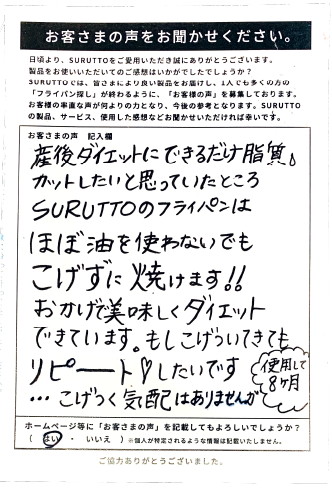 お客さまの声をお聞かせください。
日頃より、SURUTTOをご愛用いただき誠にありがとうございます。
製品をお使いいただいてのご感想はいかがでしたでしょうか?
SURUTTOでは、皆さまにより良い製品をお届けし、1人でも多くの方の
「フライパン探し」が終わるように、「お客様の声」を募集しております。
お客様の率直な声が何よりの力となり、今後の参考となります。SURUTTO
の製品、サービス、使用した感想などお聞かせいただければ幸いです。
お客さまの声 記入欄
産後ダイエットにできるだけ脂質を
カットしたいと思っていたところ
SURUTTOのフライパンは
ほぼ油を使わないでも
こげずに焼けます!!
おかげで美味しくダイエット
できています。もしこげついてきても
リピート♡したいです
…こげつく気配はありませんが
使用して
8ヶ月
ホームページ等に「お客さまの声」を記載してもよろしいでしょうか?
( はい ・ いいえ ) ※個人が特定されるような情報は記載いたしません。
ご協力ありがとうございました。